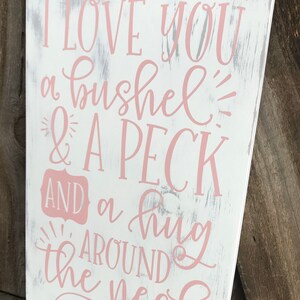 I LOVE YOU
a bushel
& A PECK
AND a hug
AROUND
the neck